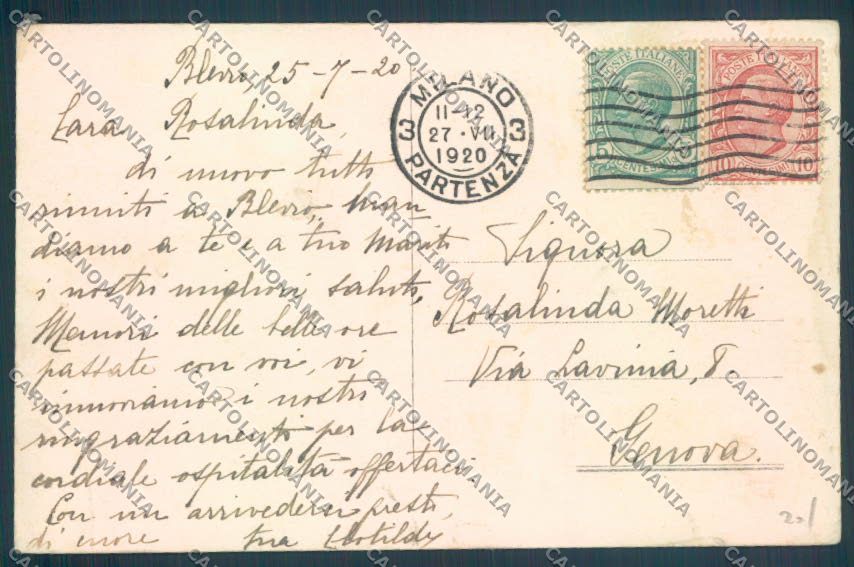 Blevio, 25-7-20
Cara Rosalinda,
di nuovo tutti
riuniti a Blevio, man-
diamo a te e a tuo Marito
i nostri migliori saluti,
Memori delle belle ore
passate con voi, vi
rinnoviamo i nostri
ringraziamenti per la
cordiale ospitalità offertaci
Con un arrivederci presto,
di cuore tua Clotilde
MILANO
11-12
3 27·VII 3
1920
PARTENZA
POSTE ITALIANE
5 CENTESIMI 5
POSTE ITALIANE
10 CENTESIMI 10
Signora
Rosalinda Moretti
Via Lavinia, 8
Genova.
CARTOLINOMANIA